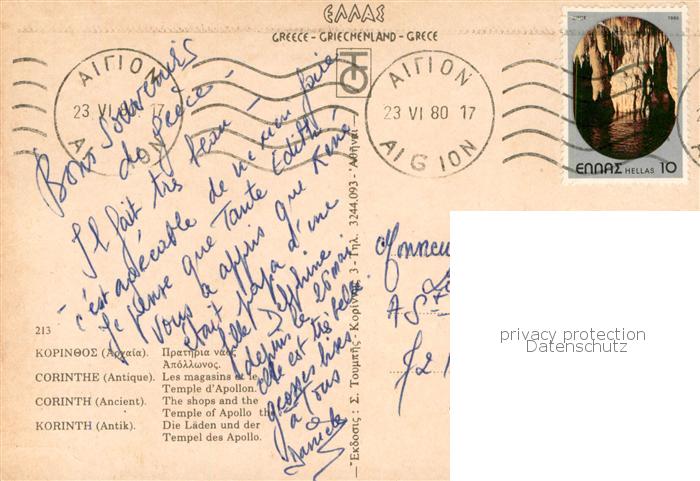 ΕΛΛΑΣ
GREECE - GRIECHENLAND - GRECE
ΑΙΓΙΟΝ
23 VI 80 17
ΑΙGΙΟΝ
ΑΙΓΙΟΝ
23 VI 80 17
AIGION
1980
ΕΛΛΑΣ HELLAS 10
Bons Souvenirs
de grèce -
Il fait très beau -
c'est agréable de ne rien faire
Je pense que Tante Edith
vous a appris que René
était papa d'une
fille Delphine
depuis le 26 mai.
elle est très belle.
grosses bises
à Tous
Danièle
Monsieur
A Ste
72
213
ΚΟΡΙΝΘΟΣ (Αρχαία). Πρατήρια ναός
Απόλλωνος.
CORINTHE (Antique). Les magasins et le
Temple d'Apollon.
CORINTH (Ancient). The shops and the
Temple of Apollo
KORINTH (Antik). Die Läden und der
Tempel des Apollo.
—Έκδοσις: Σ. Τουμπής - Κορίνης 3 - Τηλ. 3244.093 - Αθήναι—
privacy protection
Datenschutz